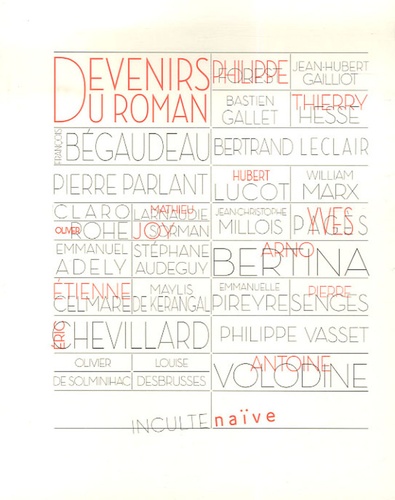 DEVENIRS
DU ROMAN
PHILIPPE
FOREST
JEAN-HUBERT
GAILLIOT
BASTIEN
GALLET
THIERRY
HESSE
FRANÇOIS
BÉGAUDEAU
BERTRAND LECLAIR
PIERRE PARLANT
HUBERT
LUCOT
WILLIAM
MARX
CLARO
MATHIEU
LARNAUDIE
JEAN-CHRISTOPHE
MILLOIS
YVES
PAGÈS
OLIVER
ROHE
JOY
SORMAN
EMMANUEL
ADELY
STÉPHANE
AUDEGUY
ARNO
BERTINA
ÉTIENNE
CELMARE
MAYLIS
DE KERANGAL
EMMANUELLE
PIREYRE
PIERRE
SENGES
ÉRIC
CHEVILLARD
PHILIPPE VASSET
OLIVIER
DE SOLMINIHAC
LOUISE
DESBRUSSES
ANTOINE
VOLODINE
INCULTE naïve